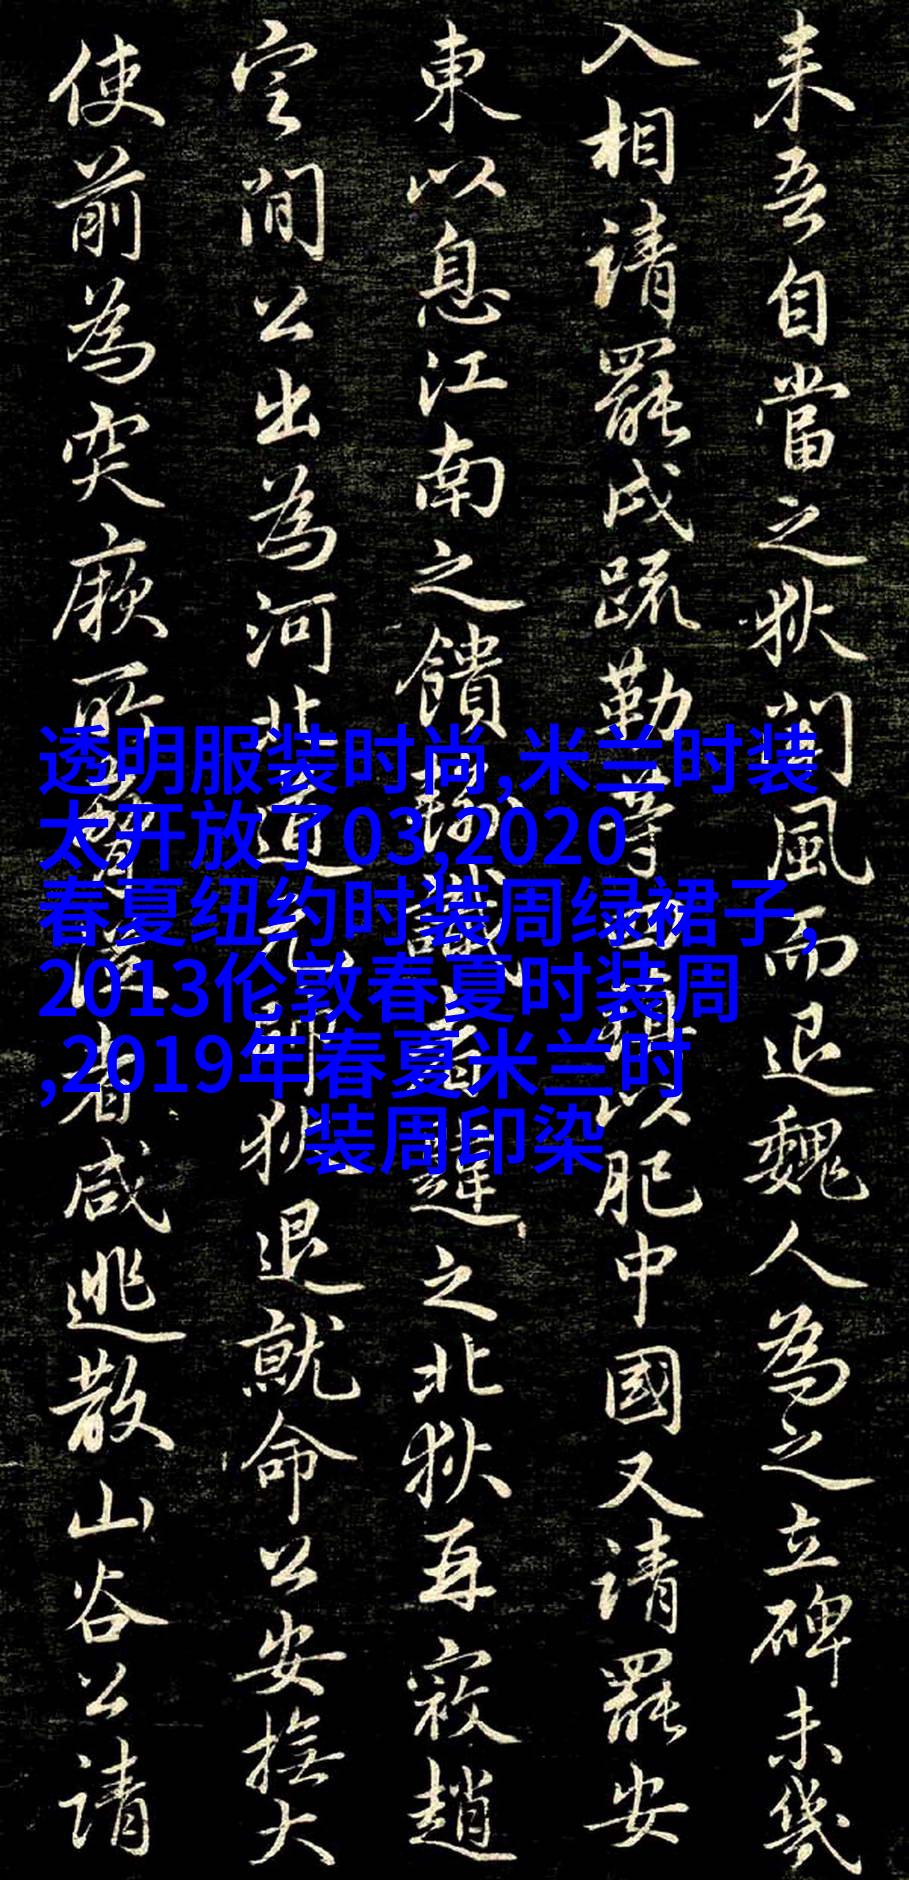 来吾自當之狄聞風而退魏人為之立碑未幾
入相請罷戍疏勒等四鎮以肥中國又請罷安
東以息江南之饋輸識者韙之北狄再寇趙
定間公出為河北道元帥狄退就命公安撫大
使前為突厥所脅從者咸逃散山谷公請
透明服装时尚,米兰时装
太开放了03,2020
春夏纽约时装周绿裙子,
2013伦敦春夏时装周
,2019年春夏米兰时
装周印染